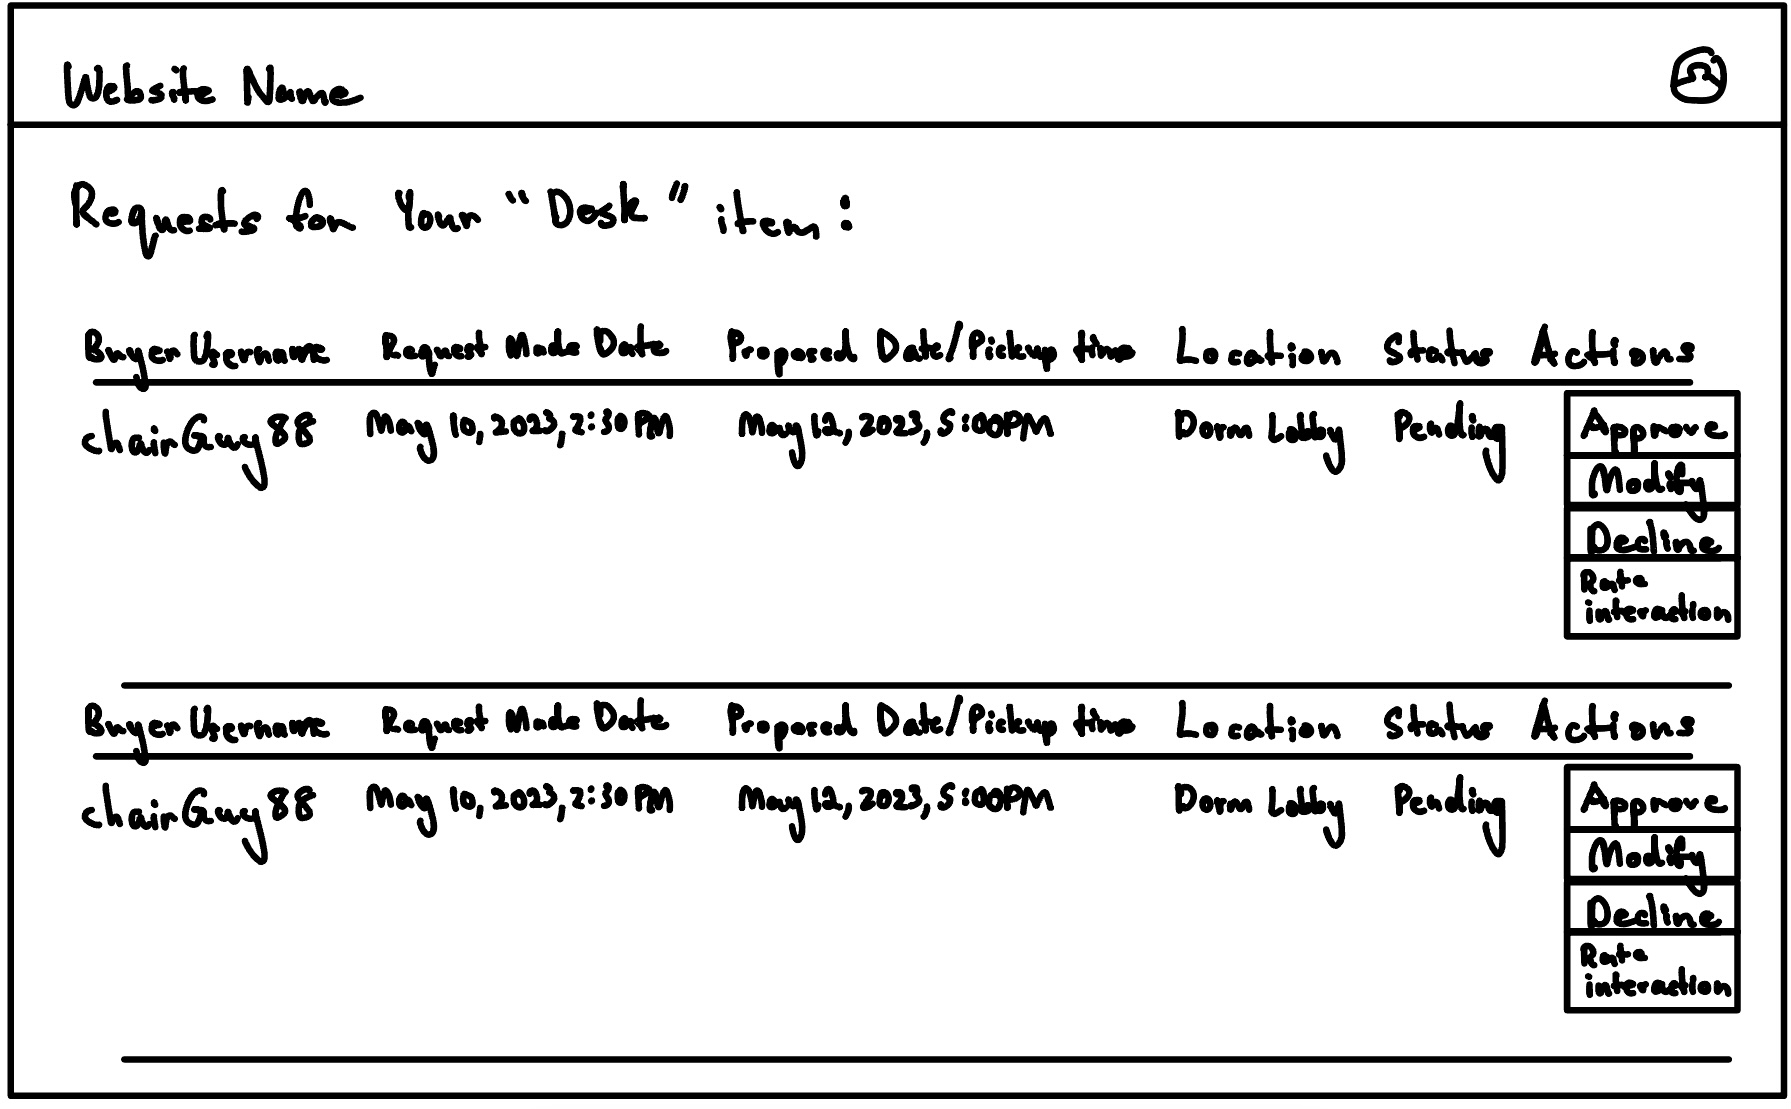 Website Name
Requests for Your "Desk" item:
Buyer Username Request Made Date Proposed Date/Pickup time Location Status Actions
chairGuy88 May 10, 2023, 2:30 PM May 12, 2023, 5:00PM Dorm Lobby Pending Approve
Modify
Decline
Rate
interaction
Buyer Username Request Made Date Proposed Date/Pickup time Location Status Actions
chairGuy88 May 10, 2023, 2:30 PM May 12, 2023, 5:00PM Dorm Lobby Pending Approve
Modify
Decline
Rate
interaction